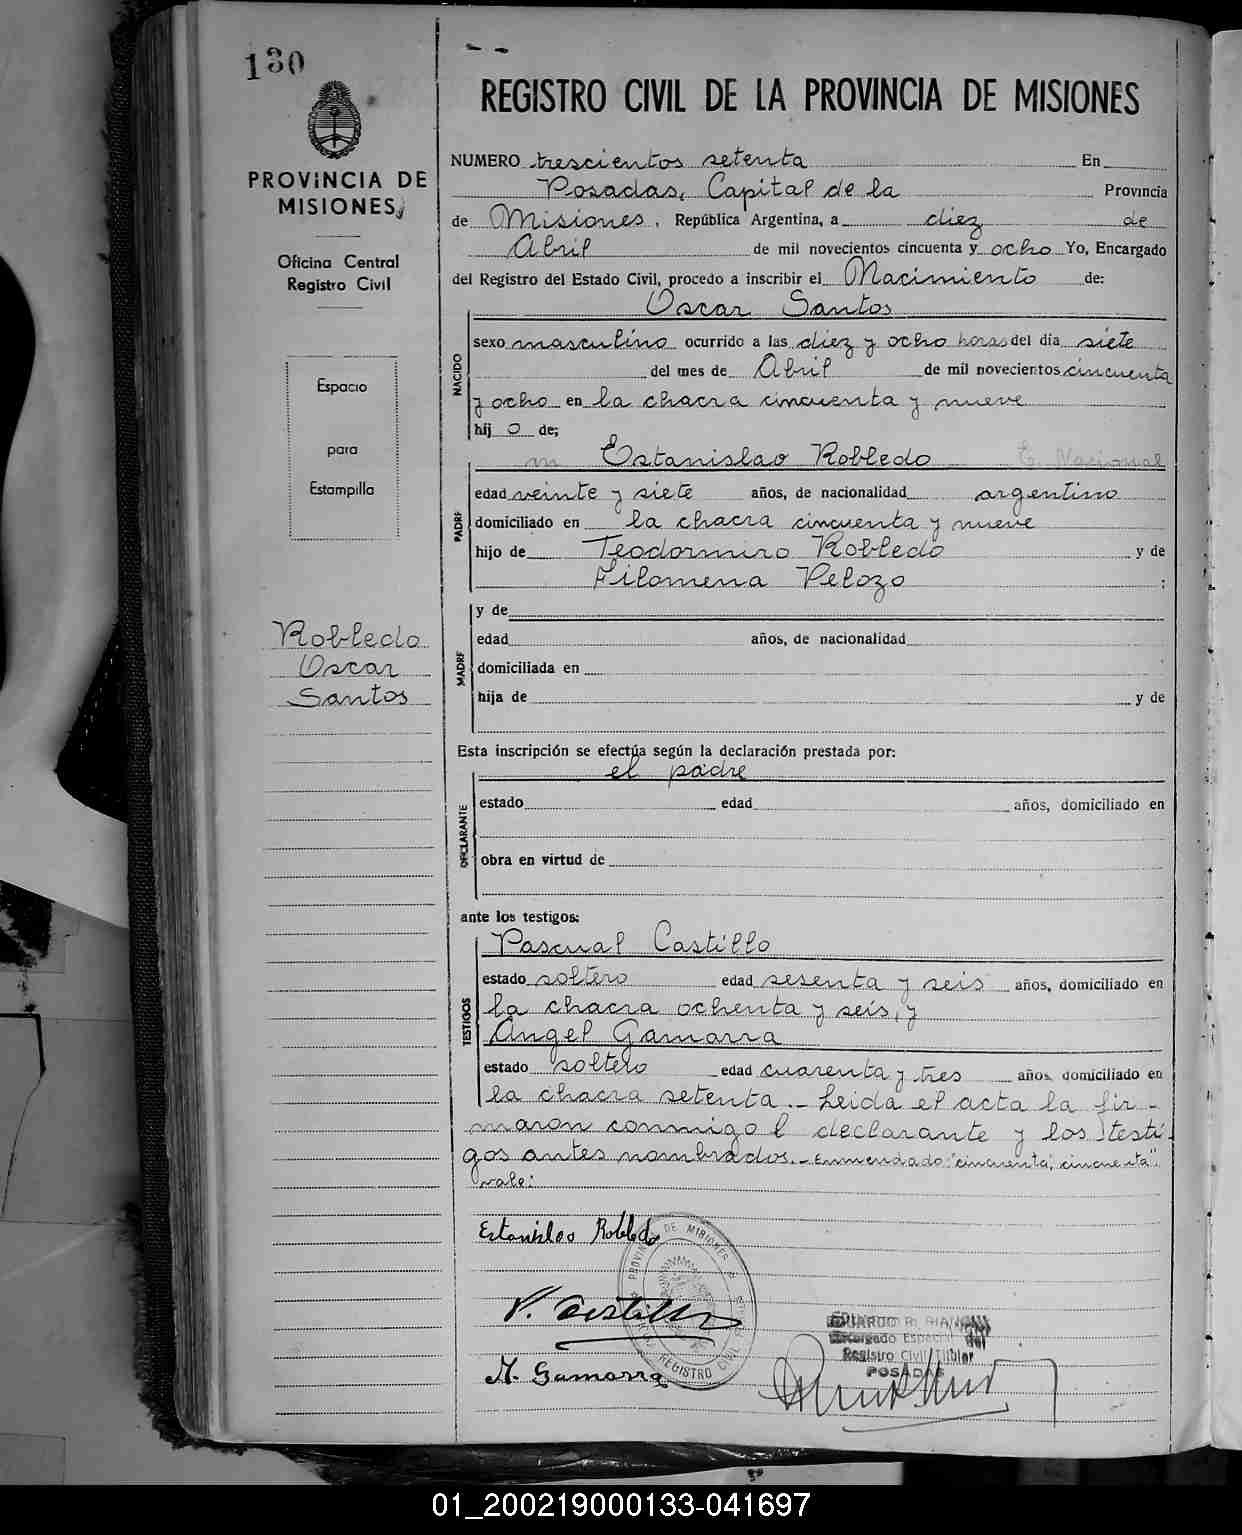 130
PROVINCIA DE
MISIONES
Oficina Central
Registro Civil
Espacio
para
Estampilla
Robledo
Oscar
Santos
REGISTRO CIVIL DE LA PROVINCIA DE MISIONES
NUMERO trescientos setenta En
Posadas, Capital de la Provincia
de Misiones, República Argentina, a diez de
Abril de mil novecientos cincuenta y ocho Yo, Encargado
del Registro del Estado Civil, procedo a inscribir el Nacimiento de:
Oscar Santos
NACIDO
sexo masculino ocurrido a las diez y ocho horas del día siete
del mes de Abril de mil novecientos cincuenta
y ocho en la chacra cincuenta y nueve
hij o de;
Estanislao Robledo C. Nacional
PADRE
edad veinte y siete años, de nacionalidad argentino
domiciliado en la chacra cincuenta y nueve
hijo de Teodormiro Robledo y de
Filomena Velozo ;
MADRE
y de
edad años, de nacionalidad
domiciliada en
hija de y de
Esta inscripción se efectúa según la declaración prestada por:
el padre
DECLARANTE
estado edad años, domiciliado en
obra en virtud de
ante los testigos:
TESTIGOS
Pascual Castillo
estado soltero edad sesenta y seis años, domiciliado en
la chacra ochenta y seis, y
Angel Gamarra
estado soltero edad cuarenta y tres años, domiciliado en
la chacra setenta.- Leida el acta la fir-
maron conmigo l declarante y los testi-
gos antes nombrados.- Enmendado: "cincuenta, cincuenta".
vale:
Estanislao Robledo
PROVINCIA DE MISIONES
REGISTRO CIVIL
P. Castillo
A. Gamarra
EDUARDO R.
Encargado Especial del
Registro Civil
POSADAS
01_200219000133-041697